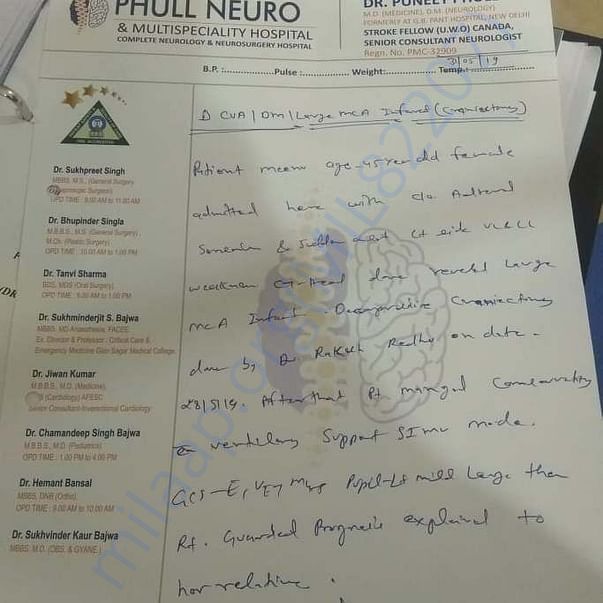 PHULL NEURO
& MULTISPECIALITY HOSPITAL
COMPLETE NEUROLOGY & NEUROSURGERY HOSPITAL
DR. PUNEET
M.D. (MEDICINE), D.M. (NEUROLOGY)
FORMERLY AT G.B. PANT HOSPITAL, NEW DELHI
STROKE FELLOW (U.W.O) CANADA,
SENIOR CONSULTANT NEUROLOGIST
Regn. No. PMC-32909
B.P. :................Pulse :................Weight:................Temp.:................
31/05/19
Dr. Sukhpreet Singh
MBBS, M.S., (General Surgery
OPD TIME : 9.00 AM to 11.00 AM
Dr. Bhupinder Singla
M.B.B.S., M.S. (General Surgery),
M.Ch. (Plastic Surgery)
OPD TIME : 10.00 AM to 1.00 PM
Dr. Tanvi Sharma
BDS, MDS (Oral Surgery)
OPD TIME : 9.00 AM to 1.00 PM
Dr. Sukhminderjit S. Bajwa
MBBS, MD Anaesthesia, FACEE
Ex. Director & Professor : Critical Care &
Emergency Medicine Gian Sagar Medical College.
Dr. Jiwan Kumar
M.B.B.S., M.D. (Medicine),
(Cardiology) AFESC
Senior Consultant-Inverentional Cardiology
Dr. Chamandeep Singh Bajwa
M.B.B.S., M.D. (Pediatrics)
OPD TIME : 1.00 PM to 4.00 PM
Dr. Hemant Bansal
MBBS, DNB (Ortho)
OPD TIME : 9.00 AM to 10.00 AM
Dr. Sukhvinder Kaur Bajwa
MBBS, M.D. (OBS. & GYANE.)
CVA / DM / Large MCA Infarct (craniectomy)
Patient age - 45 year old female
admitted here with c/o Altered
& Sudden Lt side UL & LL
weakness CT-Head done large
MCA Infarct. craniectomy
done by Dr on date -
28/5/19. After that Pt. managed conservatively
ventilatory Support SIMV mode.
GCS - Pupil - Lt mild large then
Rt. Guarded Prognosis explained to
her relative.
milaap.org